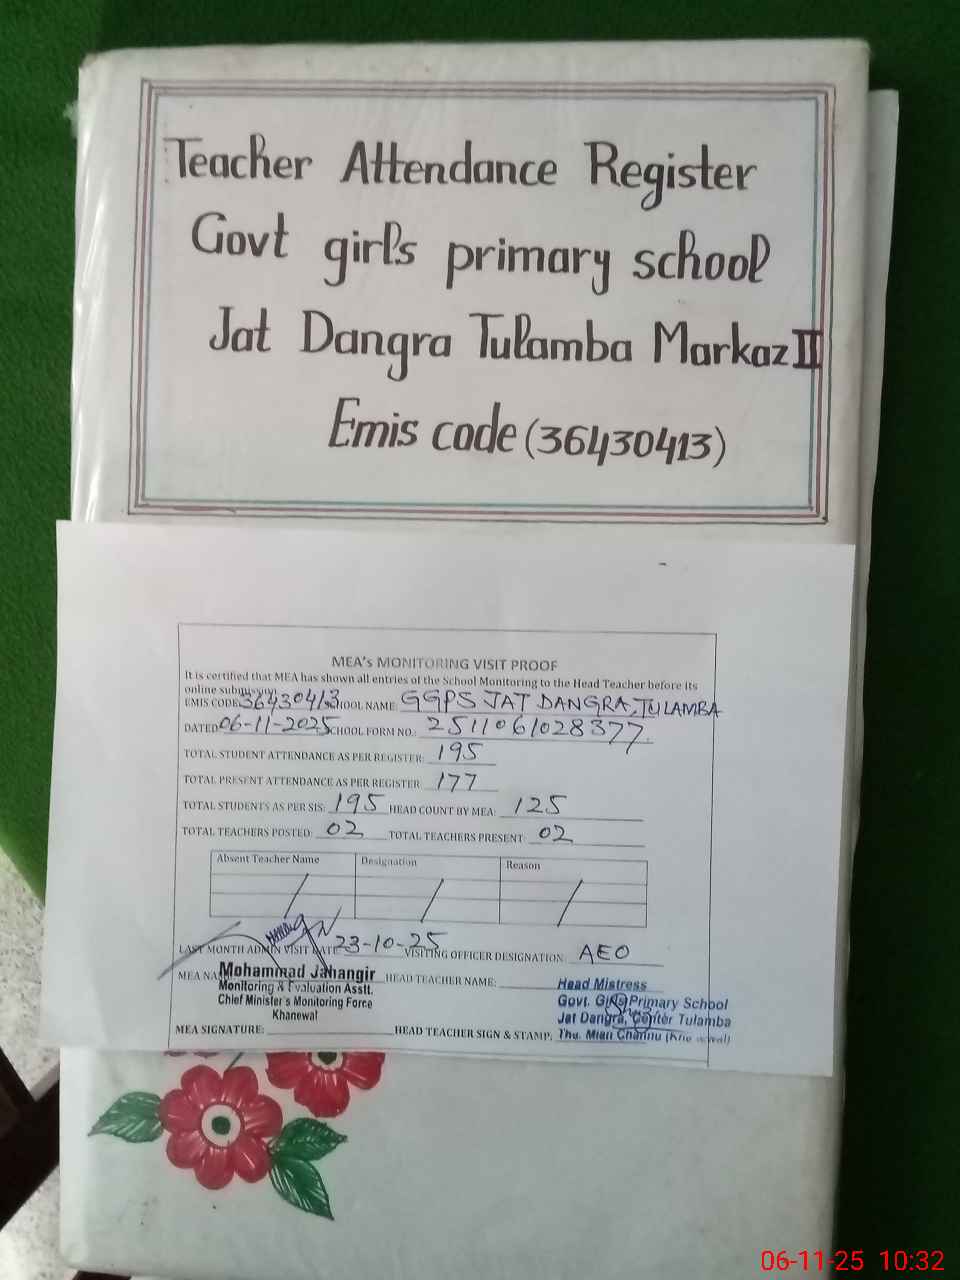 Teacher Attendance Register
Govt girls primary school
Jat Dangra Tulamba Markaz II
Emis code (36430413)
MEA's MONITORING VISIT PROOF
It is certified that MEA has shown all entries of the School Monitoring to the Head Teacher before its
online submission
EMIS CODE: 36430413 SCHOOL NAME: GGPS JAT DANGRA, TULAMBA
DATED 06-11-2025 SCHOOL FORM NO.: 2511061028377
TOTAL STUDENT ATTENDANCE AS PER REGISTER: 195
TOTAL PRESENT ATTENDANCE AS PER REGISTER 177
TOTAL STUDENTS AS PER SIS: 195 HEAD COUNT BY MEA: 125
TOTAL TEACHERS POSTED: 02 TOTAL TEACHERS PRESENT: 02
Absent Teacher Name Designation Reason
LAST MONTH ADMIN VISIT DATE 23-10-25 VISITING OFFICER DESIGNATION: AEO
MEA NA Mohammad Jahangir HEAD TEACHER NAME: Head Mistress
Monitoring & Evaluation Asstt. Govt. Girls Primary School
Chief Minister's Monitoring Force Jat Dangra, Center Tulamba
Khanewal
MEA SIGNATURE: HEAD TEACHER SIGN & STAMP: Thu. Mian Channu (Khanewal)
06-11-25 10:32